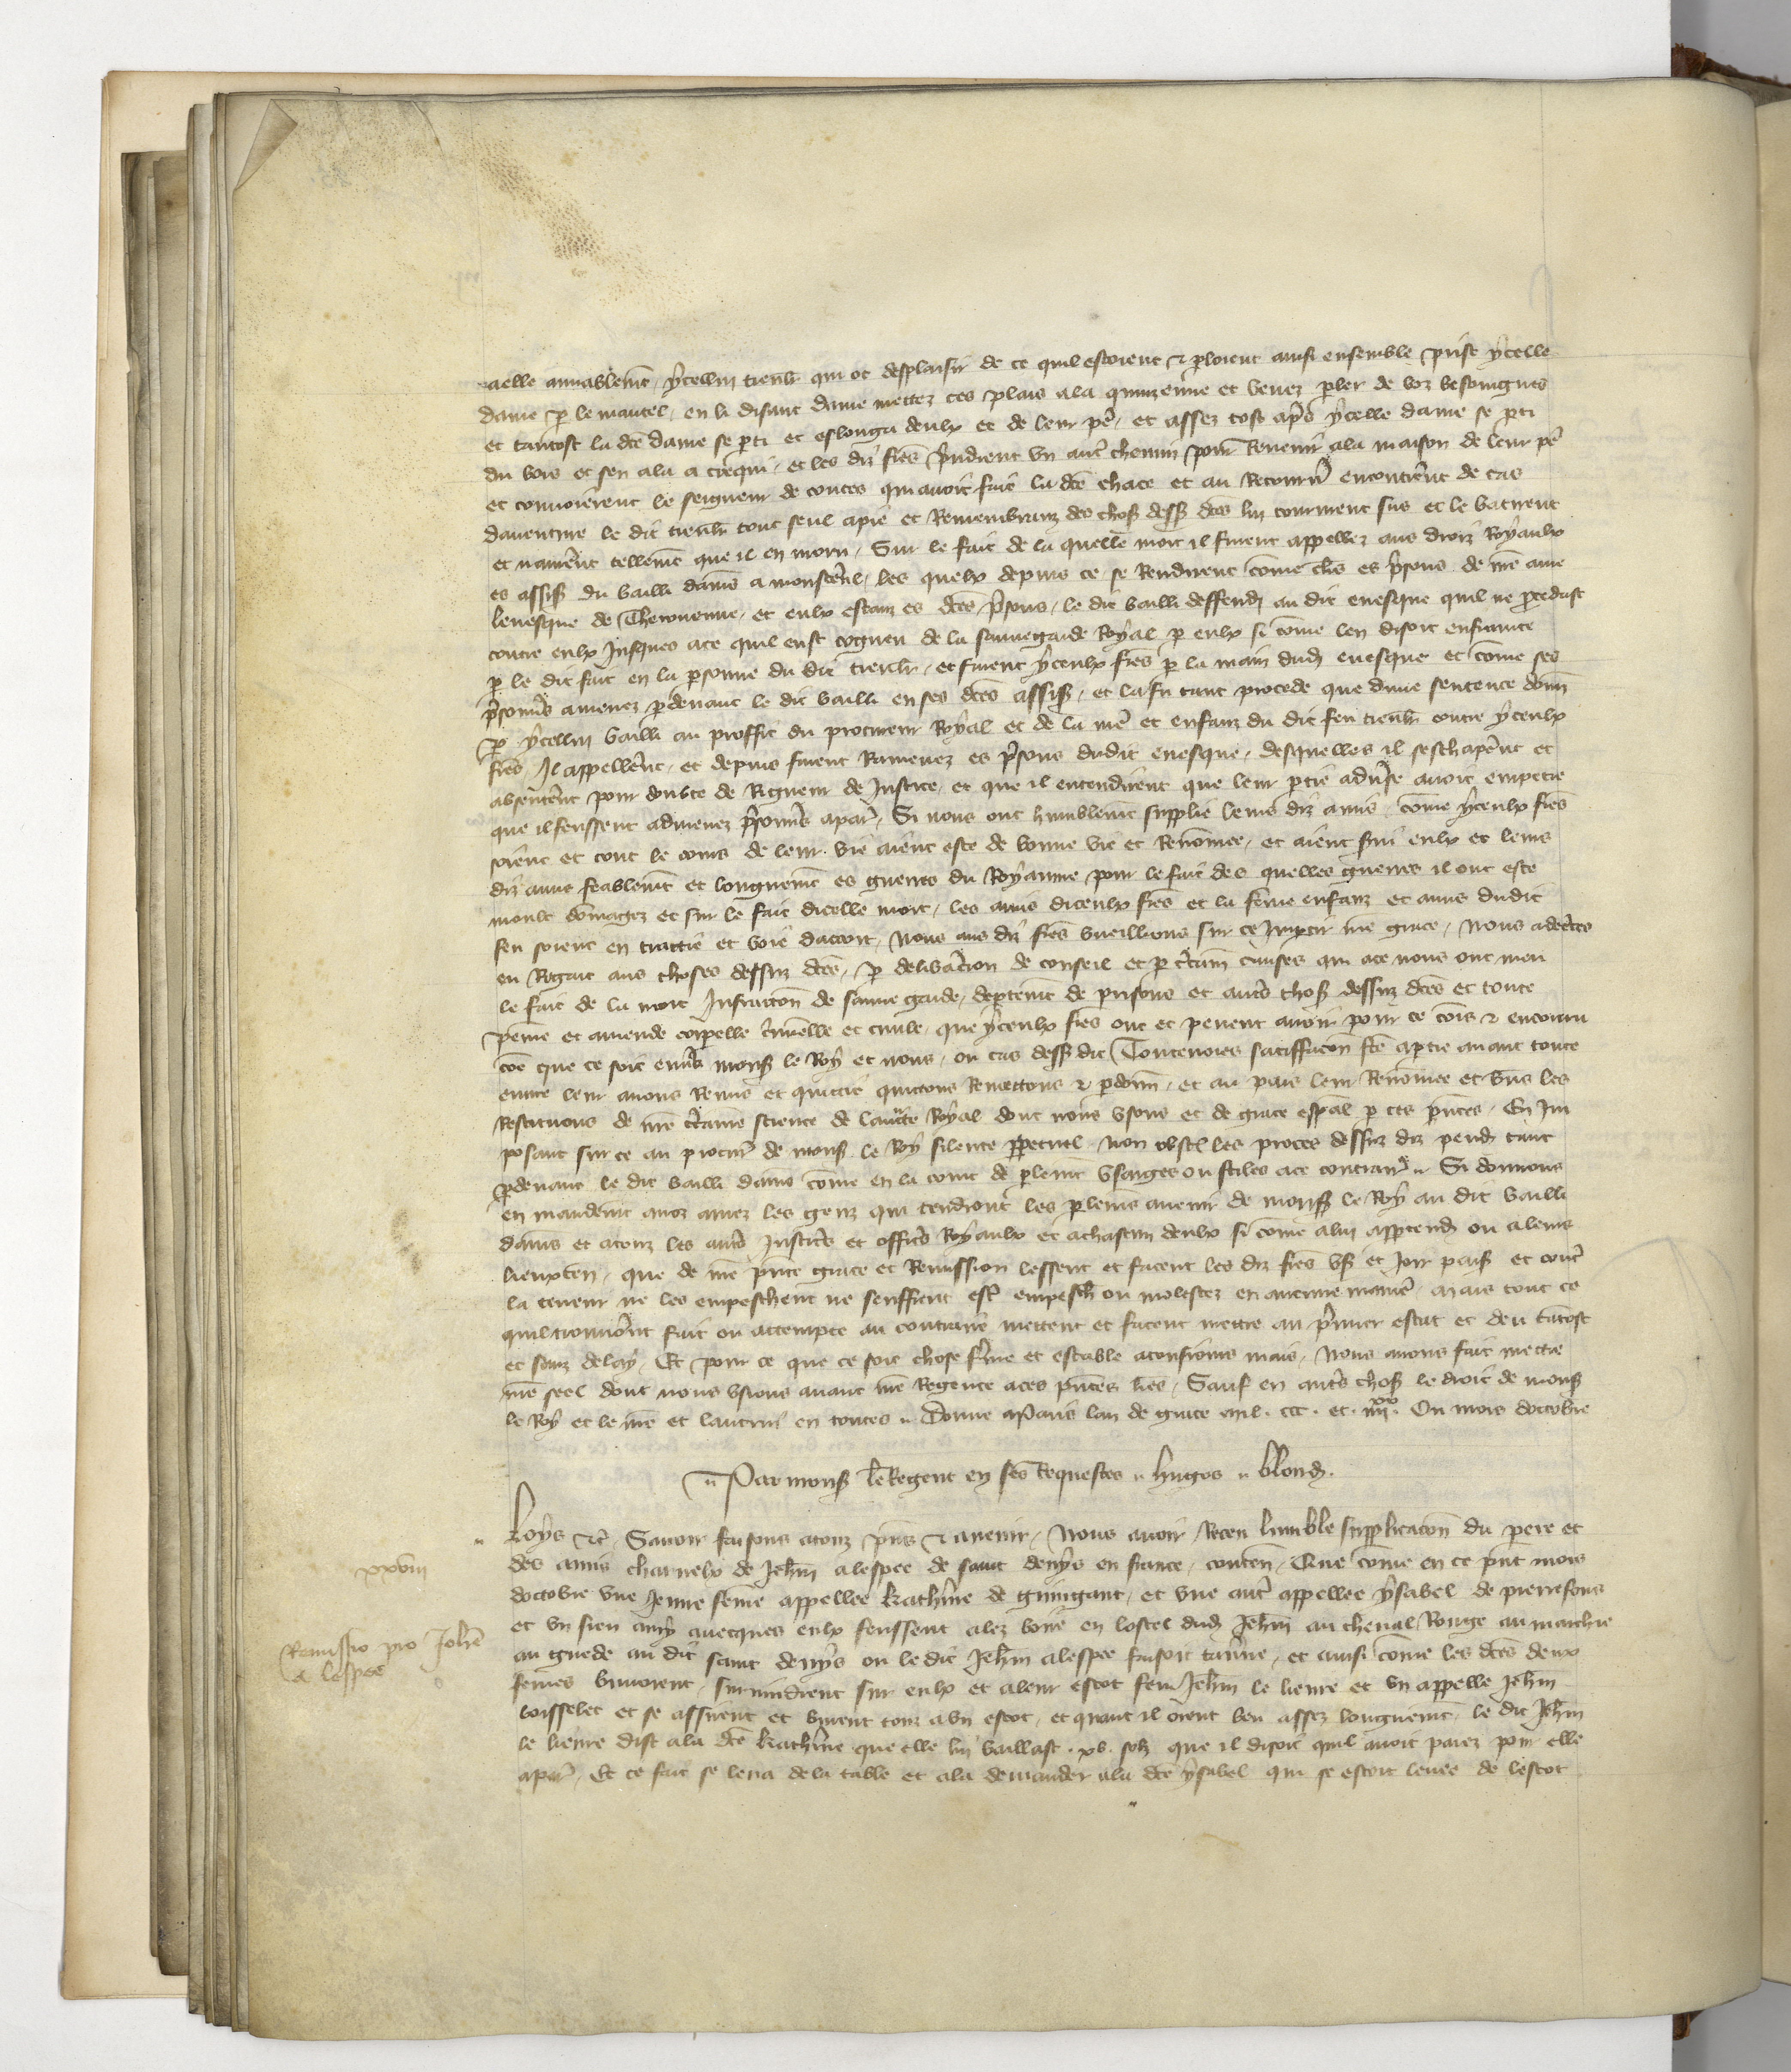 aelle amiablem̄t / ycellui qui ot desplaisir de ce quil estoient & ploient ainsi ensemble prist ycelle
dame p le mantel / en li disant dame mettez ces plais ala quinzeinne et venez pler de voz besoingnes
et tantost la dc̄e dame se pti et eslonga deulx et de leur pe / et assez tost ap̄s ycelle dame se pti
du bois et sen ala a crequi / et les diz fr̄es prindrent vn aut̄ chemin pour Revenir ala maison de leur pe
et convoierent le seigneur de contes qui avoit fait la dc̄e chace et au Retourn̄ encontrer̄nt de cas
daventure le dit tout seul apie et Remembranz des choß desß dc̄es lui coururent sus et le batirent
et navrer̄nt tellem̄t que il en moru / Sur le fait de la quelle mort il furent appellez aus droiz Royaulx
es assiß du bailli damiēs a monster̄ul / les quelx depuis ce se Rendirent cōme clers es p̄sons de nr̄e ame
levesque de Therouenne / et eulx estanz es dc̄es p̄sons / le dit bailli deffendi au dit evesque quil ne pcedast
contre eulx Jusques ace quil eust cogneu de la sauvegarde Royal p eulx si cōme len disoit enfrainte
p le dit fait en la psonne du dit / et furent yceulx fr̄es p la main dud evesque et cōme ses
p̄sonn̄s amenez pdevant le dit bailli en ses dc̄es assiß / et la fu tant procede que dune sentence donn̄
p ycellui bailli au proffit du procureur Royal et de la mē et enfanz du dit feu contre yceulx
fr̄es / Il appeller̄nt / et depuis furent Ramenez es p̄sons dudit evesque / desquelles il seschaper̄nt et
absenter̄nt pour doubte de Rigueur de Justice / et que il entendirent que leur ptie advse avoit empetre
que il feussent admenez p̄sonn̄s apar̄ / Si nous ont humblem̄t supplie leurs diz amis / cōme yceulx fr̄es
soient et tout le cours de leur vie aient este de bonne vie et Renōmee / et aient suvi eulx et leurs
diz amis feablem̄t et longuem̄t es guerres du Royaume pour le fait des quelles guerres il ont este
moult dōmagez et sur le fait dicelle mort / les amis diceulx fr̄es et la fēme enfanz et amis dudit
feu soient en traittie et voie dacort / Nous aus diz fr̄es vueillions sur ce Impartir nr̄e grace / Nous adecertes
en Regart aus choses dessus dc̄es / p deliberac̄ion de conseil et p certain̄ causes qui ace nous ont meu
le fait de la mort Infraccion de sauve garde / deptem̄t de prisons et autr̄s choß dessus dc̄es et toute
peine et amende corpelle cr̄mielle et civile / que yceulx fr̄es ont et pevent avoir pour ce cōmis & encouru
cōe que ce soit envers monß le Roy et nous / ou cas desß dit Toutevoies satisffac̄on fc̄e aptie avant toute
euvre leur avons Remis et quictie quictons Remettons & pdonn̄ / et au pais leur Renōmee et biens les
Restituons de nr̄e certaine science de lauc̄te Royal dont nous usons et de grace esp̄al p ces p̄ntes / En Im
posant sur ce au procur̄ de monß le Roy silence ppetuel Non obstāt les proces dessus diz pend tant
pdevant le dit bailli damiēs cōme en la court de plem̄t vsages ou stiles ace contraires Si donnons
en mandem̄t anoz amez les genz qui tendront les plem̄s avenir de monß le Roy au dit bailli
damiēs et atouz les autr̄s Justic̄rs et offic̄rs Royaulx et achascun deulx si cōme alui apptendr ou aleurs
lieuxten̄ / que de nr̄e p̄nte grace et Remission lessent et facent les diz fr̄es vs̄ et Joir paiß et cont̄
la teneur ne les empeschent ne seuffrent est̄ empesch̄ ou molestez en aucune manie / Mais tout ce
quil trouver̄nt fait ou attempte au contraire mettent et facent mettre au p̄mier estat et deu tātost
et sanz delay / Et pour ce que ce soit chose f̄me et estable atousiours mais / Nous avons fait mettre
nr̄e seel dont nous vsions avant nr̄e Regence aces p̄ntes lr̄es / Sauf en autr̄s choß le droit de monß
le Roy et le nr̄e et lautrui en toutes Donne aParis lan de grace mil . ccc . et . iiiixx . Ou mois doctobre
Par monß le Regent en ses Requestes hugos blond.
xxviii
Loys &c̄ Savoir faisons atouz p̄ns & avenir / Nous avoir Receu lumble supplicac̄on du pere et
des amis charnelx de Jeh̄n alespee de saint denys en france / conten̄ / Que cōme en ce p̄nt mois
doctobre vne Jeune fēme appellee kather̄ine de guingant / et vne aut̄ appellee ysabel de pierrefons
et vn sien amy avecques eulx feussent alez boire en lostel dud Jeh̄n au cheval Rouge au marchie
Remissio pro Joh̄e
a lespee
au guede au dit saint denys ou le dit Jeh̄n alespee faisoit taverne / et ainsi cōme les dc̄es deux
fēmes buvoient / survindrent sur eulx et aleur escot feu Jeh̄n le lievre et vn appelle Jeh̄n
loisselet et se assirent et burent touz avn escot / et quant il orent beu assez longuem̄t / le dit Jeh̄n
le lievre dist ala dc̄e kather̄ine que elle lui baillast . xv . solz que il disoit quil avoit paiez pour elle
apar̄ / Et ce fait se leva dela table et ala demander ala dc̄e ysabel qui se estoit levee de lescot